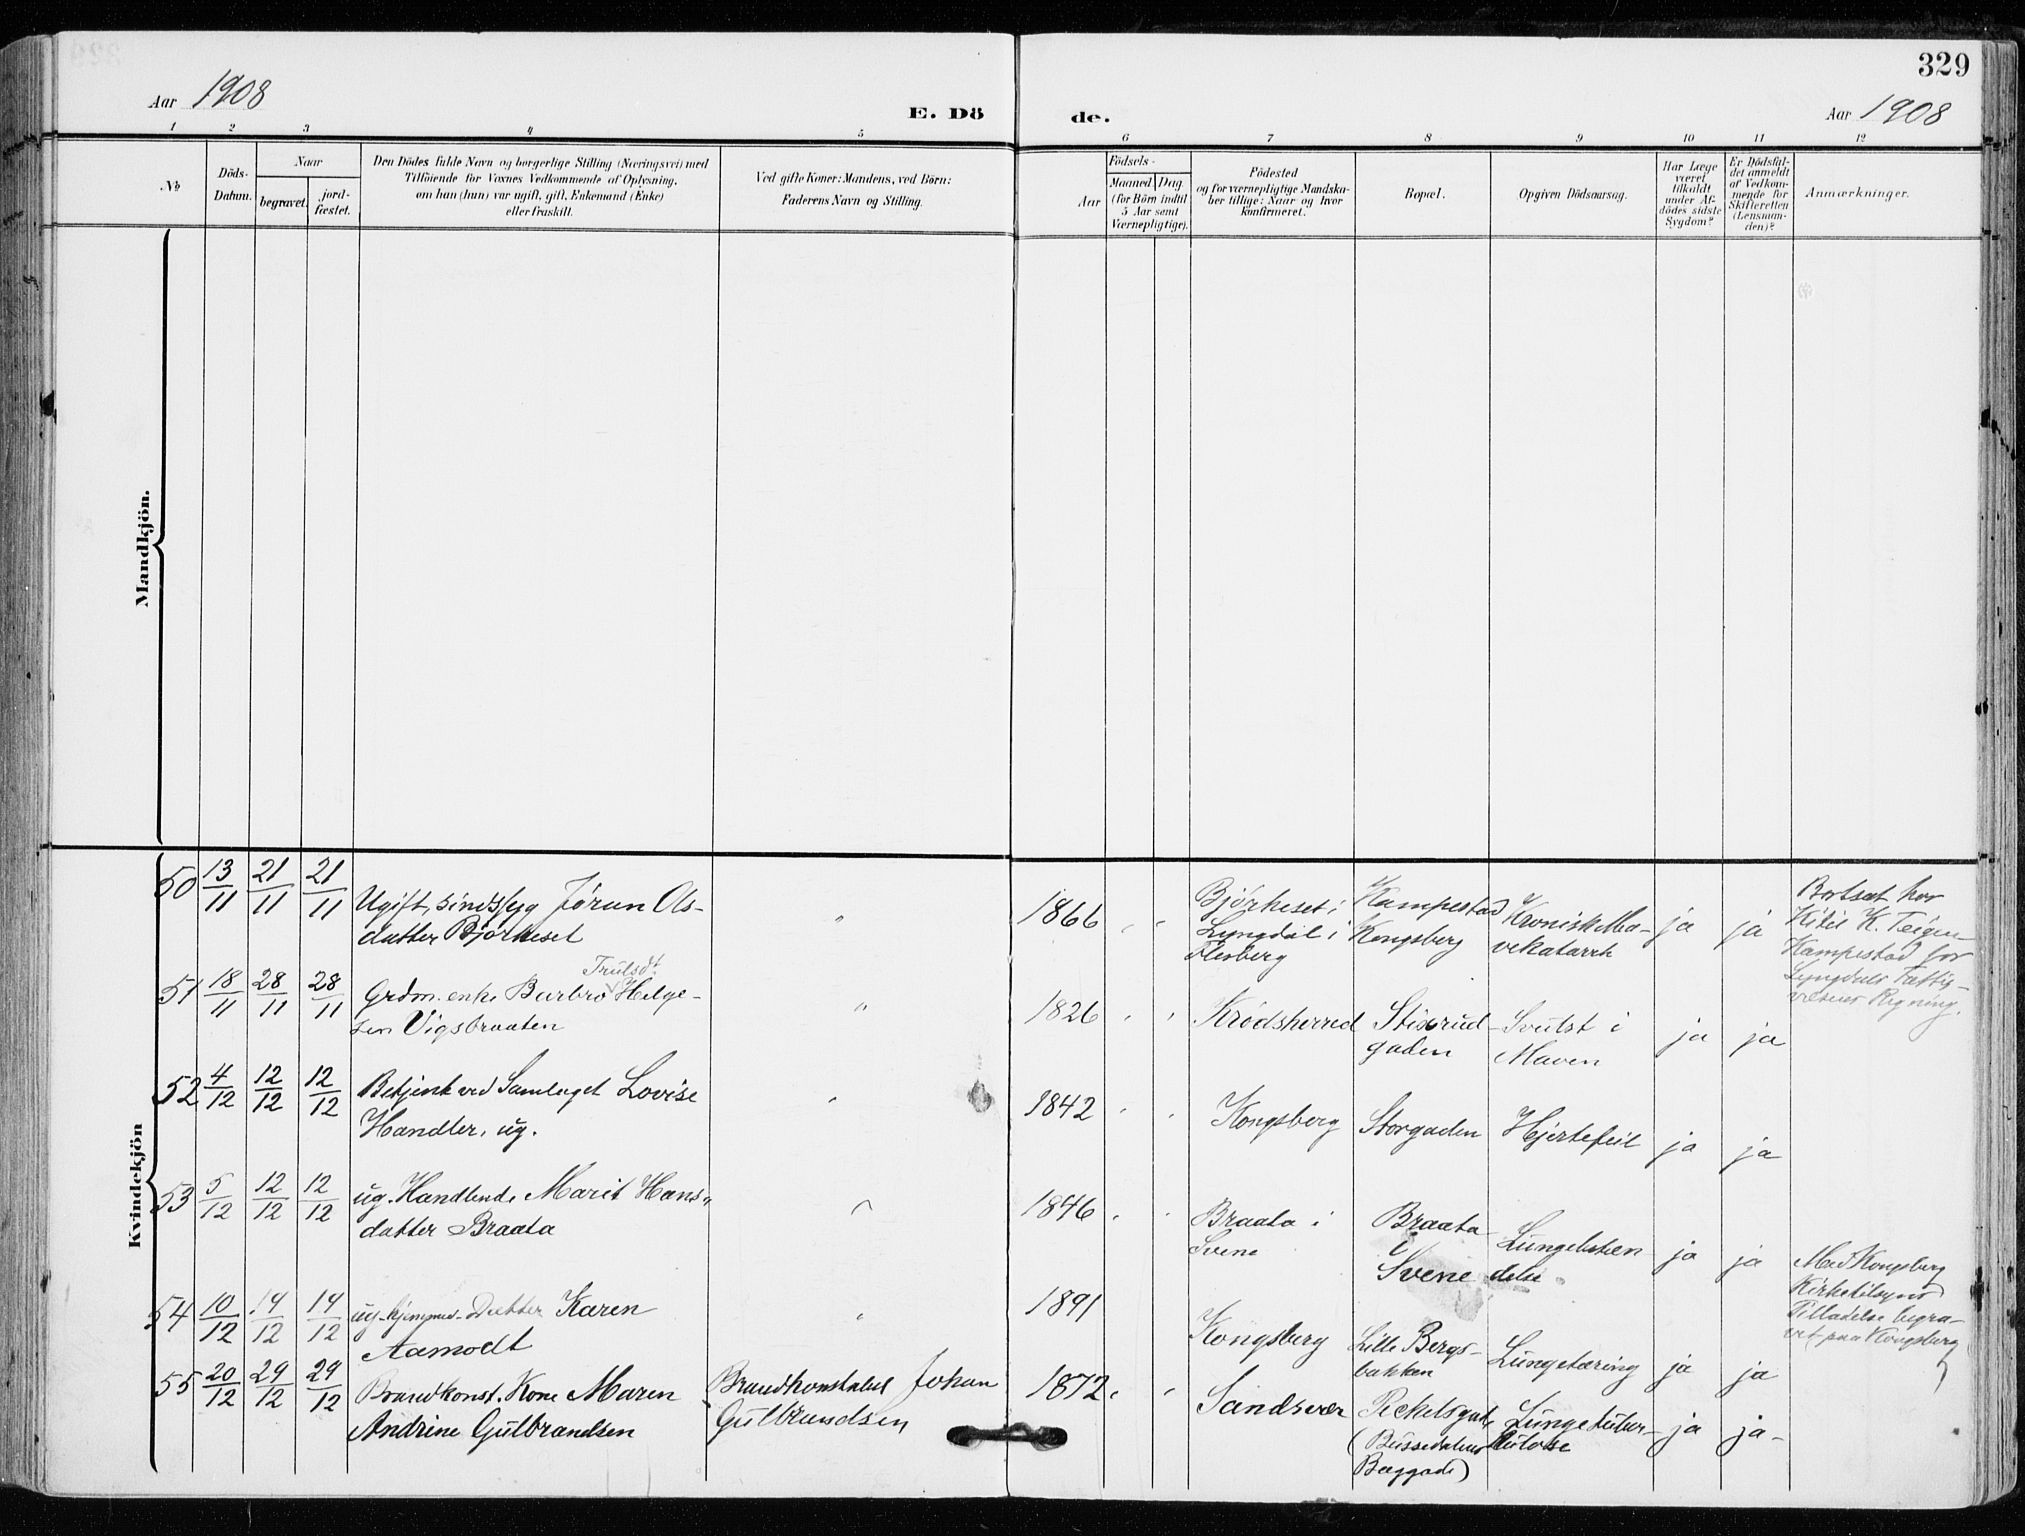 329
Aar 1908
E. Dö
de.
Aar 1908
1 2 3 4 5 6 7 8 9 10 11 12
No
Döds-
Datum.
Naar
begravet.
jord-
fæstet.
Den Dödes fulde Navn og borgerlige Stilling (Næringsvei) med
Tilföiende for Voxnes Vedkommende af Oplysning,
om han (hun) var ugift, gift, Enkemand (Enke)
eller fraskilt.
Ved gifte Koner: Mandens, ved Börn:
Faderens Navn og Stilling.
Födsels-
Aar
Maaned Dag
(for Börn indtil
5 Aar samt
Værnepligtige).
Födested
og for værnepligtige Mandska-
ber tillige: Naar og hvor
konfirmeret.
Bopæl.
Opgiven Dödsaarsag.
Har Læge
været
tilkaldt
under Af-
dödes sidste
Sygdom?
Er Dödsfal-
det anmeldt
af Vedkom-
mende for
Skifteretten
(Lensman-
den)?
Anmærkninger.
Mandkjön.
Kvindekjön
50
13/11
21/11
21/11
Ugift, sindssyg Jørun Ols-
datter Bjørkeset
"
1866
Bjørkeset i
Lyngdal i
Flesberg
Kampestad
Kongsberg
Kronisk Ma-
vekatarrh
ja
ja
Bortsat hos
Kitil K. Teigen
Kampestad for
Lyngdals Fattig-
væsens Regning.
51
18/11
28/11
28/11
Trulsdt.
Grdm. enke Barbro Helge-
sen Vigsbraaten
"
1826
Krødsherred
Stixrud-
gaden
Svulst i
Maven
ja
ja
52
4/12
12/12
12/12
Betjent ved Samlaget Lovise
Handler, ug.
"
1842
Kongsberg
Storgaden
Hjertefeil
ja
ja
53
5/12
12/12
12/12
ug. Handlende Marit Hans-
datter Braata
"
1846
Braata i
Svene
Braata
i
Svene
Lungebetæn-
delse
ja
ja
54
10/12
19/12
19/12
ug. hjemmev. Datter Karen
Aamodt
"
1891
Kongsberg
Lille Bergs-
bakken
Lungetæring
ja
ja
Med Kongsberg
Kirketilsyns
Tilladelse begra-
vet paa Kongsberg
55
20/12
29/12
29/12
Brandkonst. Kone Maren
Andrine Gulbrandsen
Brandkonstabel Johan
Gulbrandsen
1872
Sandsvær
Peckelsgad
(Bussedalens
Baggade)
Lungetuber-
kulose
ja
ja